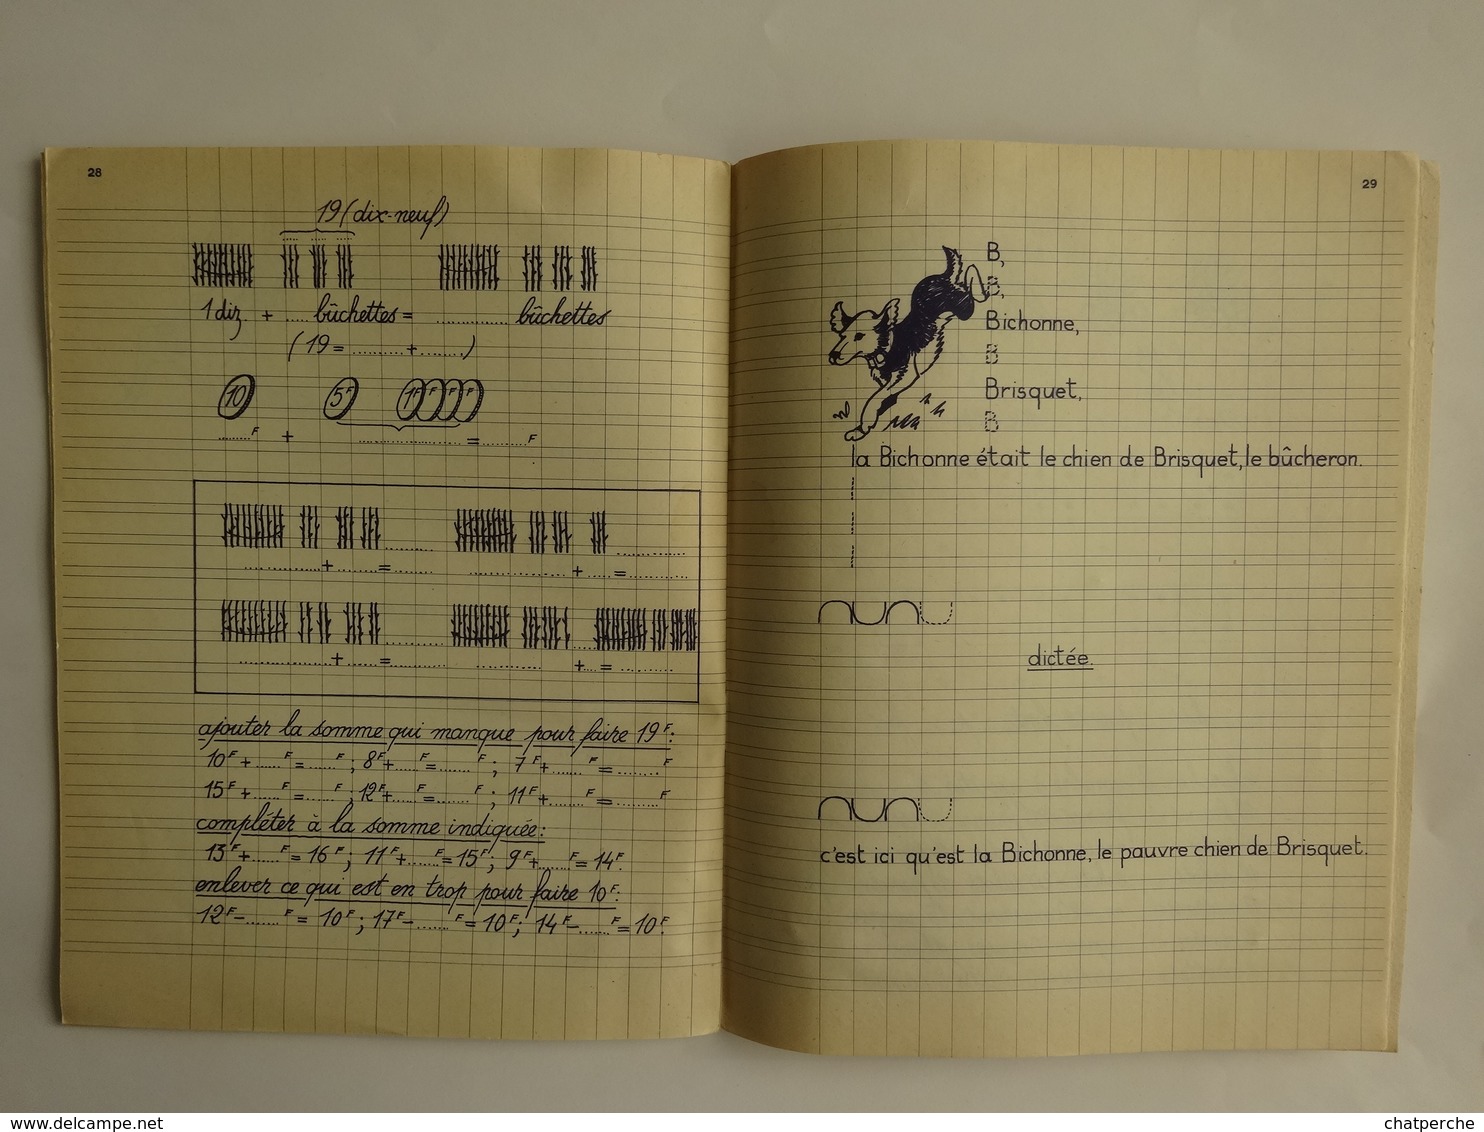 28
19 (dix-neuf)
1 diz + ...... bûchettes = ............... bûchettes
( 19 = ........... + ......... )
10 5F 1F F F F
........F + ....................... = ..........F
................ + ........ = ......... ................... + ..... = ............
................... + ...... = ........... ............. + .... = ..........
ajouter la somme qui manque pour faire 19F:
10F + ......F = ......F ; 8F + ......F = ........F ; 7F + ........F = .........F
15F + ......F = ......F ; 12F + ......F = ........F ; 11F + ........F = .........F
compléter à la somme indiquée:
13F + ......F = 16F ; 11F + .......F = 15F ; 9F + .......F = 14F.
enlever ce qui est en trop pour faire 10F:
12F - .......F = 10F ; 17F - .......F = 10F ; 14F - .......F = 10F.
29
B,
B,
Bichonne,
B
Brisquet,
B
la Bichonne était le chien de Brisquet, le bûcheron.
dictée.
c'est ici qu'est la Bichonne, le pauvre chien de Brisquet.
delcampe.net
chatperche